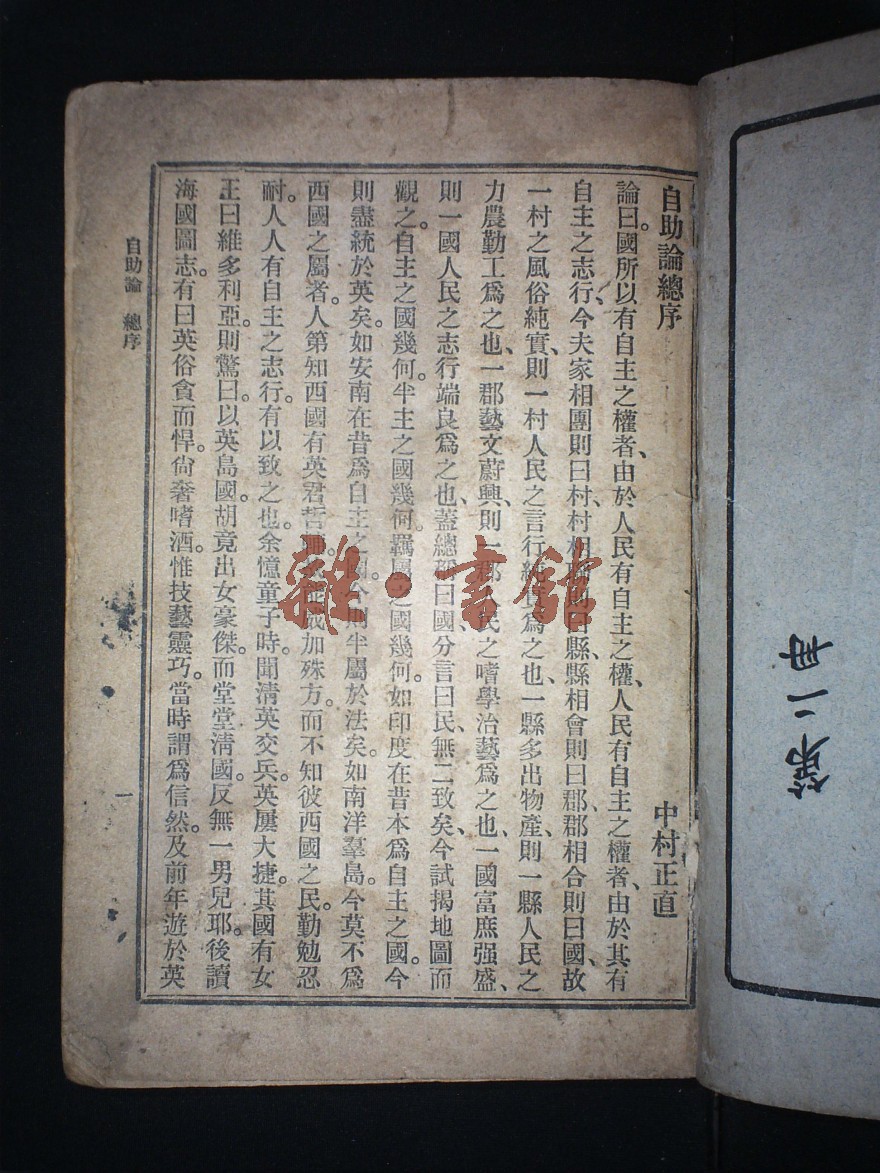 第二冊
自助論總序
中村正直
論曰。國所以有自主之權者、由於人民有自主之權、人民有自主之權者、由於其有
自主之志行、今夫家相團則曰村、村相聯則曰縣、縣相會則曰郡、郡相合則曰國、故
一村之風俗純實、則一村人民之言行純實爲之也、一縣多出物產、則一縣人民之
力農勤工爲之也、一郡藝文蔚興、則一郡人民之嗜學治藝爲之也、一國富庶强盛、
則一國人民之志行端良爲之也、蓋總稱曰國、分言曰民、無二致矣、今試揭地圖而
觀之。自主之國幾何。半主之國幾何。羈屬之國幾何。如印度在昔本爲自主之國。今
則盡統於英矣。如安南在昔爲自主之國。今則半屬於法矣。如南洋羣島。今莫不爲
西國之屬者。人第知西國有英君哲 加殊方。而不知彼西國之民。勤勉忍
耐。人人有自主之志行。有以致之也。余憶童子時。聞清英交兵。英屢大捷。其國有女
王曰維多利亞。則驚曰。以英島國。胡竟出女豪傑。而堂堂清國。反無一男兒耶。後讀
海國圖志。有曰英俗貪而悍。尙奢嗜酒。惟技藝靈巧。當時謂爲信然。及前年遊於英
自助論 總序
一
雜·書館